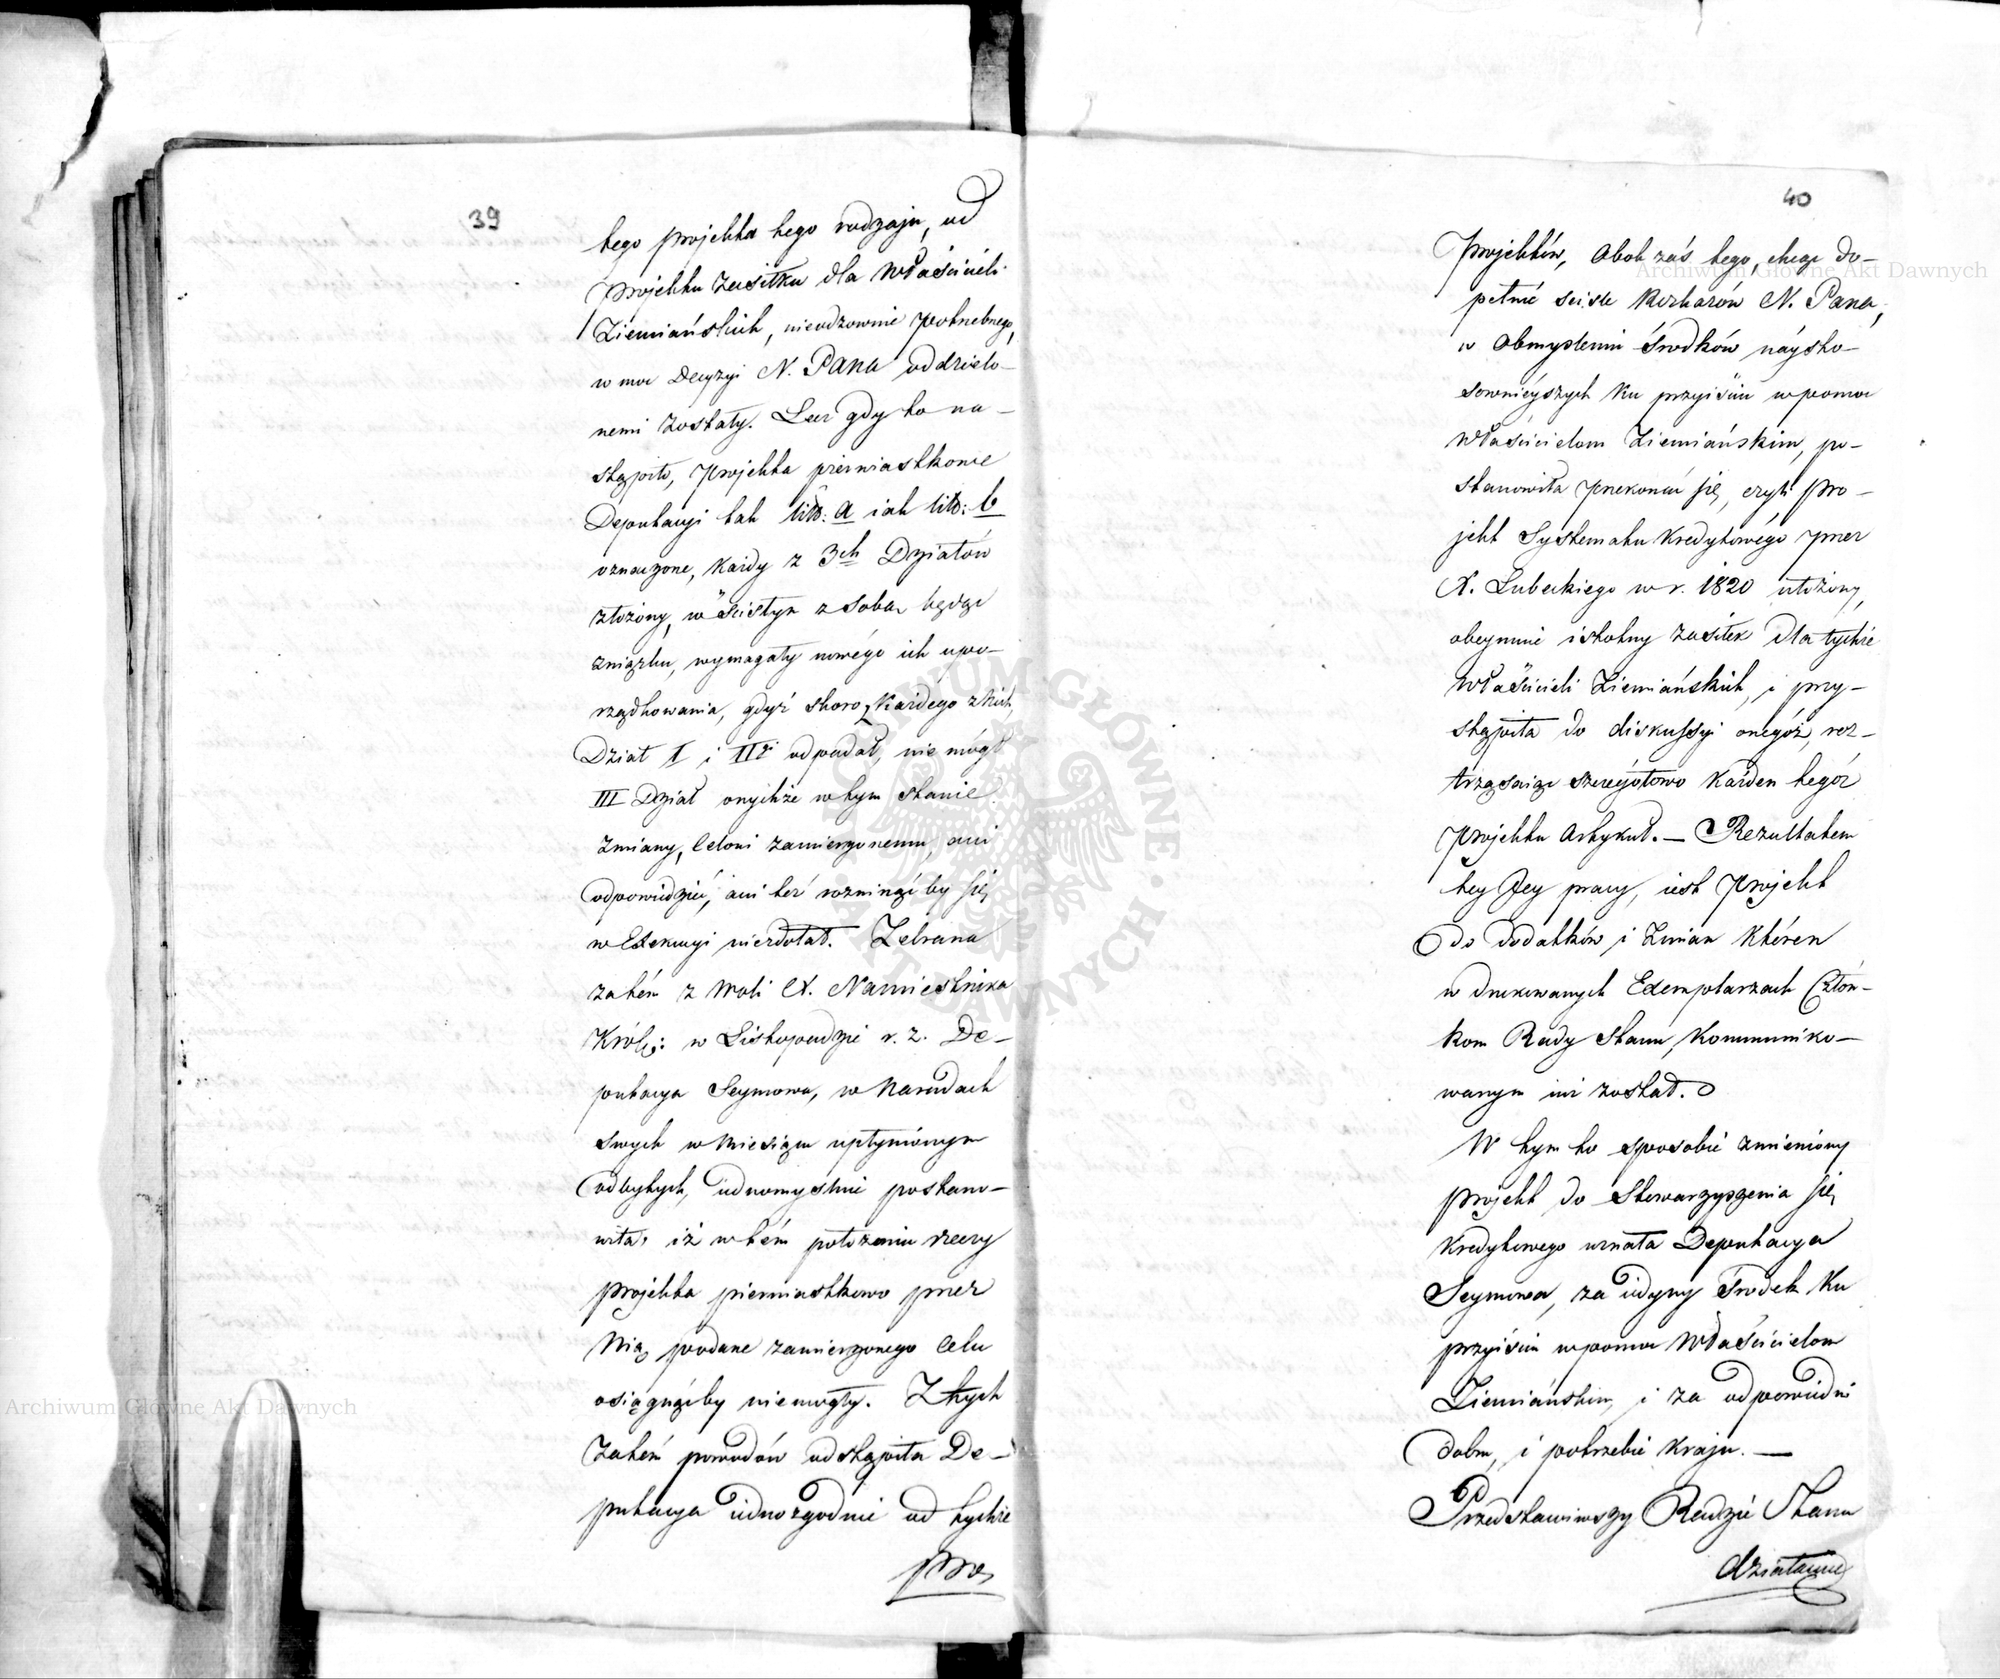 39
tego projektu tego rodzaju, od
projektu zasiłku dla Właścicieli
Ziemiańskich, nieodzownie potrzebnego,
w moc Decyzyi N. Pana oddzielo-
nemi zostały. Lecz gdy to na-
stąpiło, projekta pierwiastkowe
Deputacyi tak litt: a iak litt: b
oznaczone, każdy z 3ch Działów
złożony, w ścisłym z sobą będąc
związku, wymagały nowego ich upo-
rządkowania, gdyż skoro z każdego z nich,
Dział I i IIgi odpadał, nie mógł
III Dział onychże w tym stanie
zmiany, celowi zamierzonemu, ani
odpowiedzieć, ani też rozwinąć by się
w Exekucyi niezdołał. Zebrana
zatém z woli X. Namiestnika
Król: w Listopadzie r. z. De-
putacya Seymowa, w Naradach
swych w Miesiącu upłynionym
odbytych, iednomyślnie postano-
wiła, iż w tém położeniu rzeczy
projekta pierwiastkowo przez
Nią podane zamierzonego celu
osiągnąć by niemogły. Z tych
zatém powodów odstąpiła De-
putacya iednozgodnie od tychże
pro-
40
Projektów, Obok zaś tego, chcąc do-
pełnić ściśle Rozkazów N. Pana,
w Obmyśleniu środków náysto-
sownieyszych ku przyiściu w pomoc
Właścicielom Ziemiańskim, po-
stanowiła przekonać się, czyli pro-
jekt Systematu Kredytowégo przez
X. Lubeckiego w r. 1820 ułożony,
obeymuie istotny zasiłek dla tychże
Właścicieli Ziemiańskich, i przy-
stąpiła do diskussyi onegóż, roz-
trząsaiąc szczegółowo każden tegóż
projektu Artykuł. — Rezultatem
tey Jey pracy, iest projekt
do dodatków i Zmian któren
w drukowanych Exemplarzach Człon-
kom Rady Stanu, Kommuniko-
wanym iuż został.
W tym to sposobie zmieniony
projekt do Stowarzyszenia się
Kredytowego uznała Deputacya
Seymowa, za iedyny środek ku
przyiściu w pomoc Właścicielom
Ziemiańskim, i za odpowiedni
dobru, i potrzebie kraju. —
Przedstawiwszy Radzie Stanu
działanie
Archiwum Główne Akt Dawnych
Archiwum Główne Akt Dawnych
ARCHIWUM GŁÓWNE AKT DAWNYCH